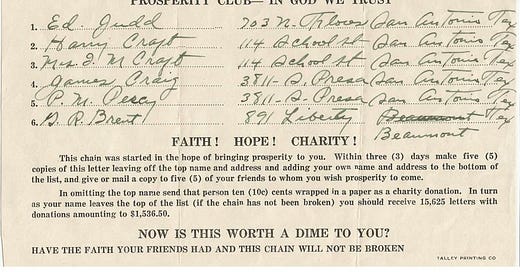 PROSPERITY CLUB—IN GOD WE TRUST
1. Ed Judd 703 N. San Antonio Tex
2. Harry Craft 114 School St San Antonio Tex
3. Mrs F M Craft 114 School St San Antonio Tex
4. James Craig 3811-S. Presa San Antonio Tex
5. P. M. Percy 3811-S. Presa San Antonio Tex
6. B. R. Brent 891 Liberty Beaumont Tex
Beaumont
FAITH! HOPE! CHARITY!
This chain was started in the hope of bringing prosperity to you. Within three (3) days make five (5)
copies of this letter leaving off the top name and address and adding your own name and address to the bottom of
the list, and give or mail a copy to five (5) of your friends to whom you wish prosperity to come.
In omitting the top name send that person ten (10c) cents wrapped in a paper as a charity donation. In turn
as your name leaves the top of the list (if the chain has not been broken) you should receive 15,625 letters with
donations amounting to $1,536.50.
NOW IS THIS WORTH A DIME TO YOU?
HAVE THE FAITH YOUR FRIENDS HAD AND THIS CHAIN WILL NOT BE BROKEN
TALLEY PRINTING CO